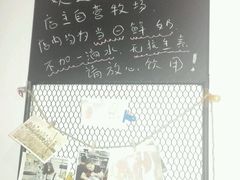 店主自营牧场.
店内均为当日鲜奶
不加一滴水,无抗生素
请放心饮用!